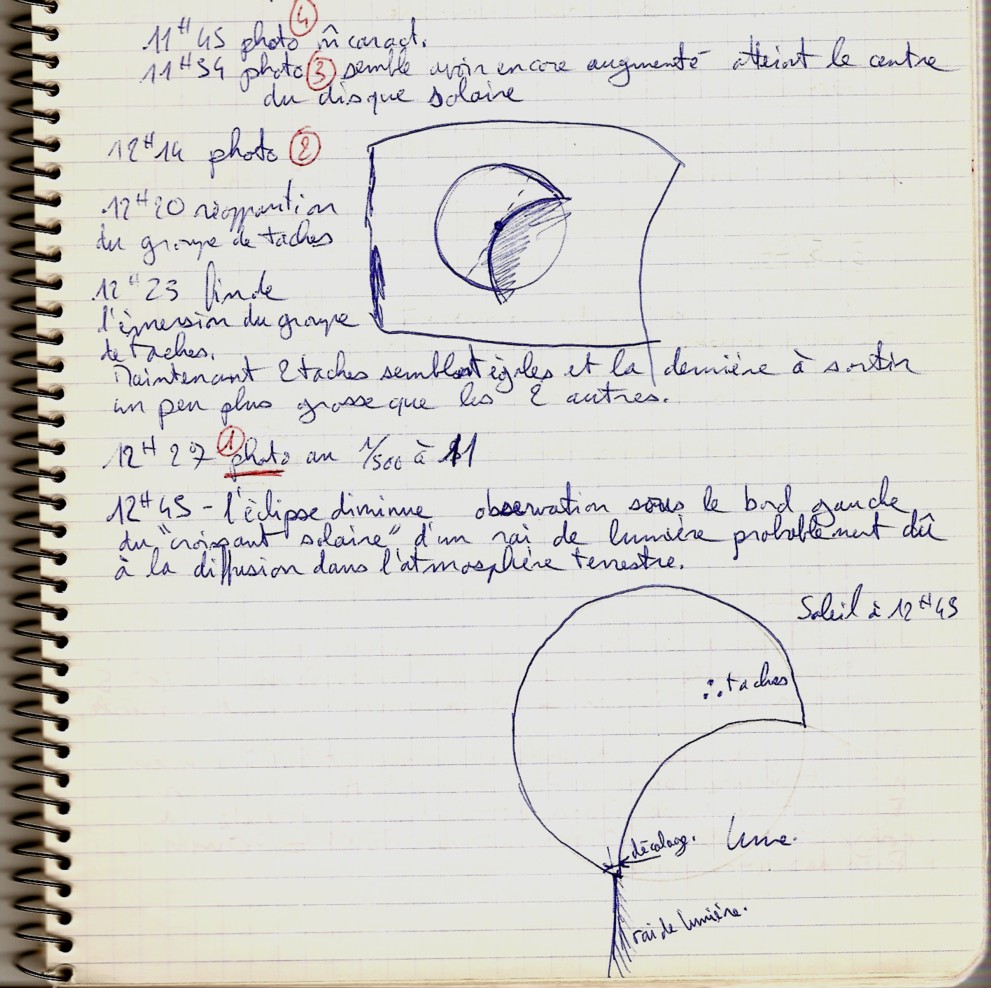 4
11H45 photo m̂ caract.
11H54 photo 3 semble avoir encore augmenté atteint le centre
du disque solaire
12H14 photo 2
12H20 réapparition
du groupe de taches
12H23 fin de
l'émersion du groupe
de taches.
Maintenant 2 taches semblent égales et la dernière à sortir
un peu plus grosse que les 2 autres.
12H27 1 photo au 1/500 à 11
12H45 - l'éclipse diminue observation sous le bord gauche
du "croissant solaire" d'un rai de lumière probablement dû
à la diffusion dans l'atmosphère terrestre.
Soleil à 12H45
taches
décalage.
lune.
rai de lumière.